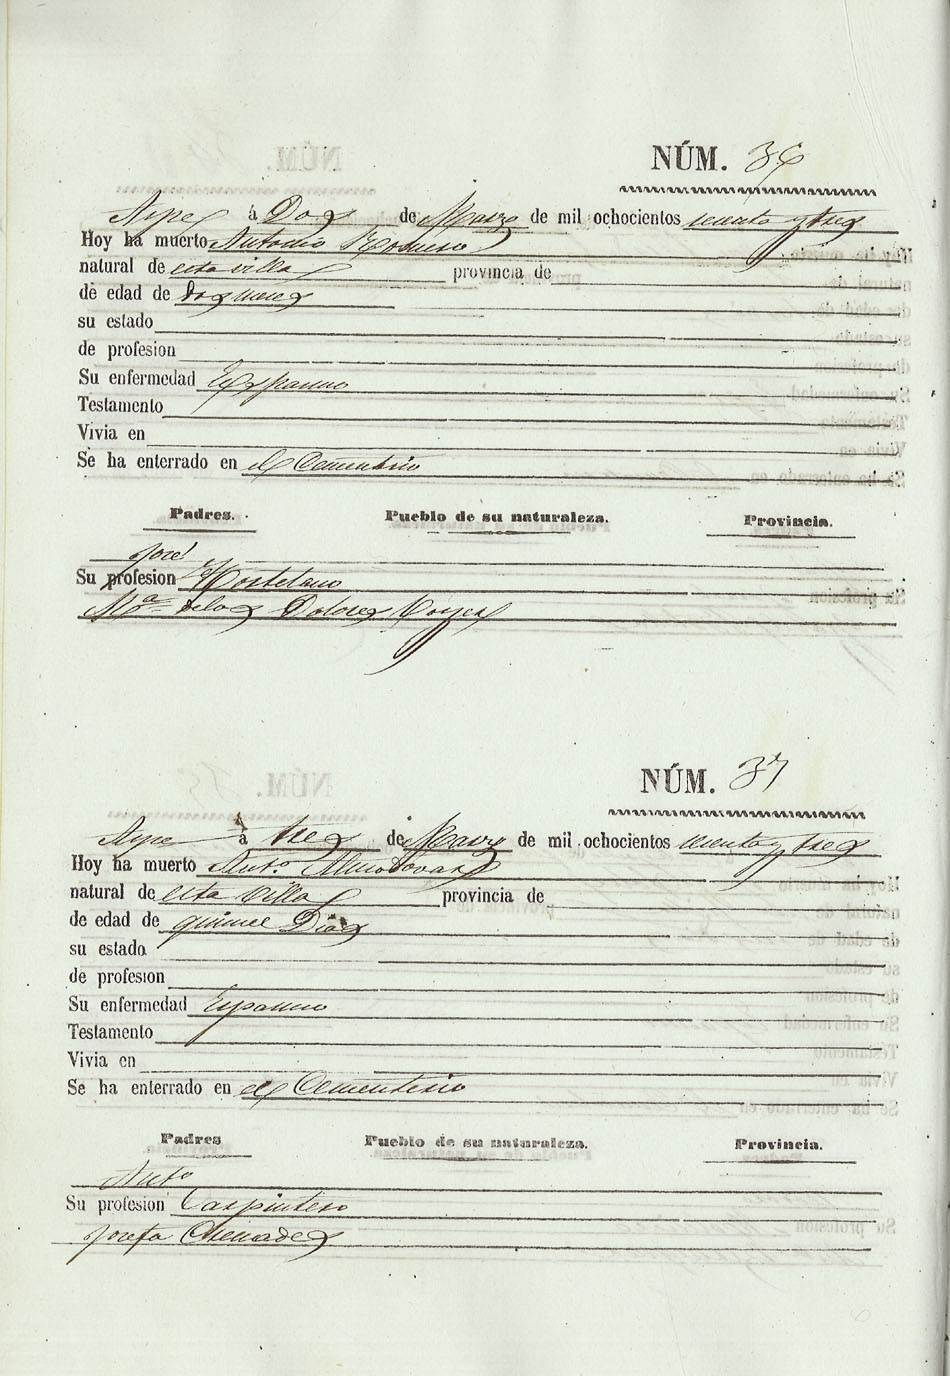 NÚM. 36
Aspe á Dos de Marzo de mil ochocientos sesenta y tres
Hoy ha muerto Antonio Romero
natural de esta villa provincia de
de edad de Dos meses
su estado
de profesion
Su enfermedad Espasmo
Testamento
Vivia en
Se ha enterrado en el Cementerio
Padres. Pueblo de su naturaleza. Provincia.
José
Su profesion Hortelano
Mª de los Dolores
NÚM. 37
Aspe á tres de Marzo de mil ochocientos sesenta y tres
Hoy ha muerto Antº Almodovar
natural de esta Villa provincia de
de edad de quince Dias
su estado
de profesion
Su enfermedad Espasmo
Testamento
Vivia en
Se ha enterrado en el Cementerio
Padres Pueblo de su naturaleza. Provincia.
Antº
Su profesion Carpintero
Josefa